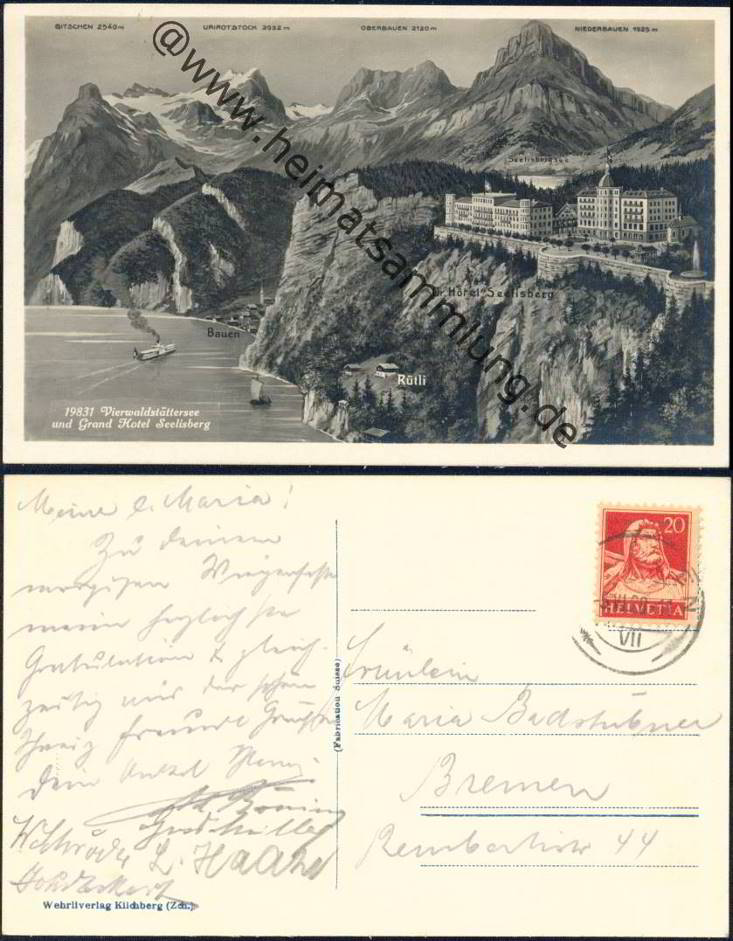 GITSCHEN 2540 m URIROTSTOCK 2932 m OBERBAUEN 2120 m NIEDERBAUEN 1925 m
@www.heimatsammlung.de
Seelisbergsee
Hotel Seelisberg
Bauen
Rütli
19831 Vierwaldstättersee
und Grand Hotel Seelisberg
Meine l. Maria!
Zu deinem
morgigen Wiegenfeste
meine herzlichste
Gratulation & gleich-
zeitig aus der schönen
Schweiz freundl. Grüße
dein Onkel
20
HELVETIA
VII
(Fabrication Suisse)
Fräulein
Maria Badstübner
Bremen
Rembertistr 44
Wehrliverlag Kilchberg (Zch.)